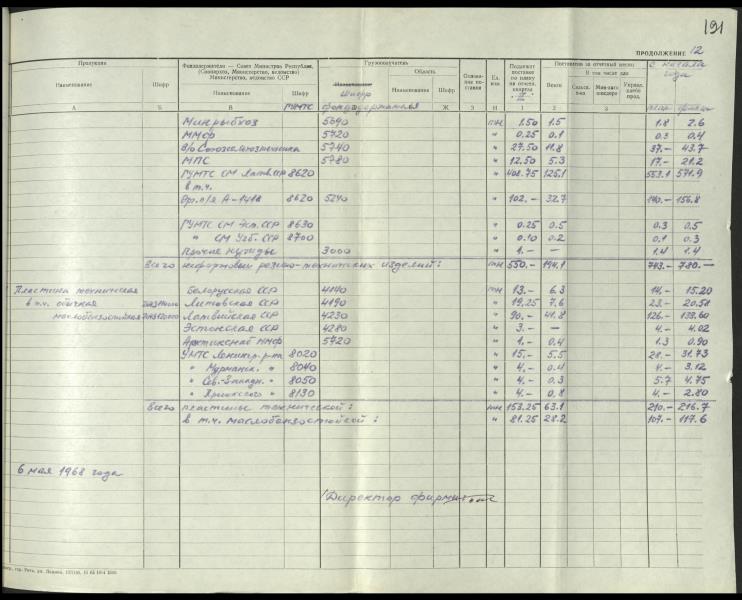 191
ПРОДОЛЖЕНИЕ 12
Продукция
Фондодержатели — Совет Министров Республики, (Совнархоз, Министерство, ведомство) Министерство, ведомство ССР
Грузополучатель
Подлежит поставке по плану на отчетн. квартал II
Поставлено за отчетный месяц
с начала года
Наименование Шифр Наименование Шифр Наименование Шифр Область Наименование Шифр Ед. изм. Всего В том числе для
план факт.
А Б В Г Ж З И 1 2 3
УМТС фондодержателя
Минрыбхоз 5690 тн 1.50 1.5 1.8 2.6
ММФ 5720 " 0.25 0.1 0.3 0.4
В/о Союзсельхозтехника 5740 " 27.50 11.8 37.- 43.7
МПС 5780 " 12.50 5.3 17.- 21.2
ГУМТС СМ Латв.ССР 8620 " 408.75 125.1 553.1 571.9
в т.ч.
Орг.п/я А-1418 8620 5240 " 102.- 32.7 140.- 156.8
ГУМТС СМ Эст. ССР 8630 " 0.25 0.5 0.3 0.5
" СМ Узб. ССР 8700 " 0.10 0.2 0.1 0.3
Прочие нужды 3000 " 1.- — 1.4 1.4
Всего неформовых резино-технических изделий: тн 550.- 194.1 743.- 780.—
Пластина техническая Белорусская ССР 4140 тн 13.- 6.3 14.- 15.20
в т.ч. обычная Литовская ССР 4190 " 19.25 7.6 23.- 20.58
маслобензостойкая Латвийская ССР 4230 " 90.- 41.8 126.- 133.60
Эстонская ССР 4280 " 3.- — 4.- 4.02
Арктикснаб ММФ 5720 " 1.- 0.4 1.3 0.90
УМТС Ленингр. р-на 8020 " 15.- 5.5 21.- 31.73
" Мурманск. " 8040 " 4.- 0.4 4.- 3.12
" Сев.-Западн. " 8050 " 4.- 0.3 5.7 4.75
" 8130 " 4.- 0.8 4.- 2.80
Всего пластины технической: тн 153.25 63.1 210.- 216.7
в т.ч. маслобензостойкой: " 81.25 28.2 107.- 117.6
6 мая 1968 года
/Директор фирмы